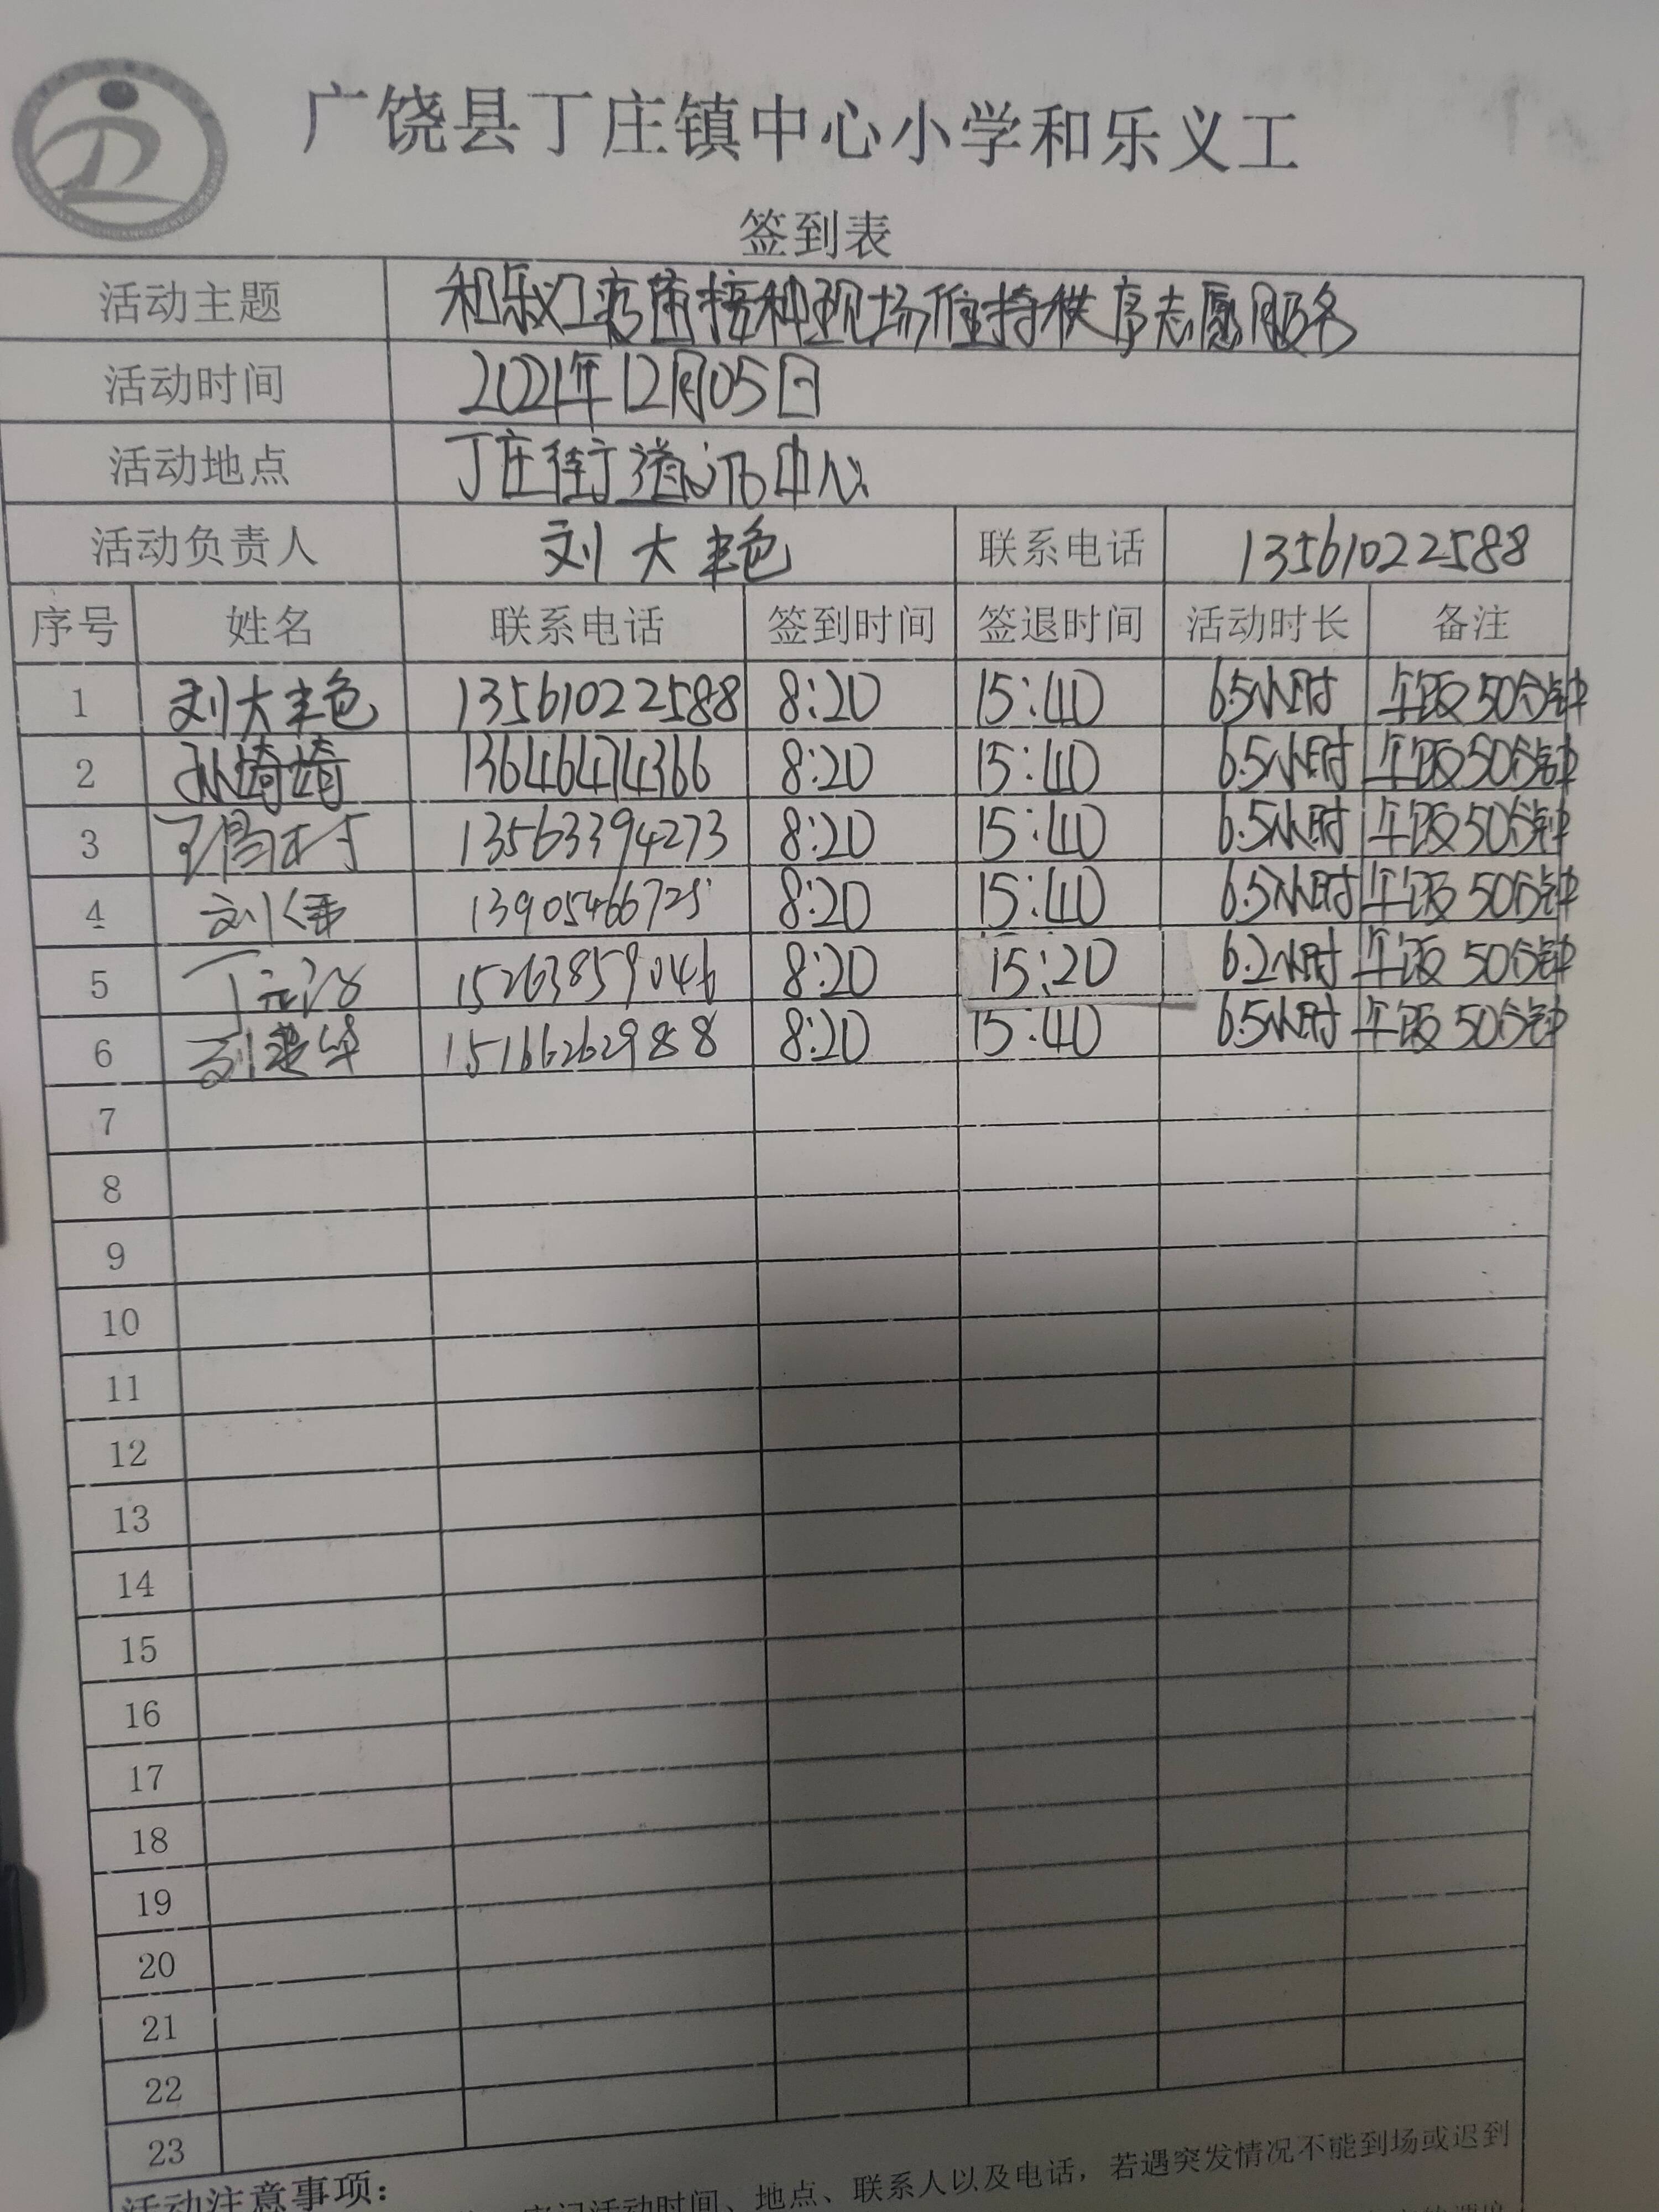 广饶县丁庄镇中心小学和乐义工
签到表
活动主题 和乐义工疫苗接种现场维持秩序志愿服务
活动时间 2021年12月05日
活动地点 丁庄街道 中心
活动负责人 刘大艳 联系电话 13561022588
序号 姓名 联系电话 签到时间 签退时间 活动时长 备注
1 刘大艳 13561022588 8:20 15:40 6.5小时 午饭50分钟
2 孙 13646474366 8:20 15:40 6.5小时 午饭50分钟
3 13563394273 8:20 15:40 6.5小时 午饭50分钟
4 刘 13905466725 8:20 15:40 6.5小时 午饭50分钟
5 丁 15263859046 8:20 15:20 6.2小时 午饭50分钟
6 刘建华 15166262988 8:20 15:40 6.5小时 午饭50分钟
7
8
9
10
11
12
13
14
15
16
17
18
19
20
21
22
23
活动注意事项:
记活动时间、地点、联系人以及电话，若遇突发情况不能到场或迟到